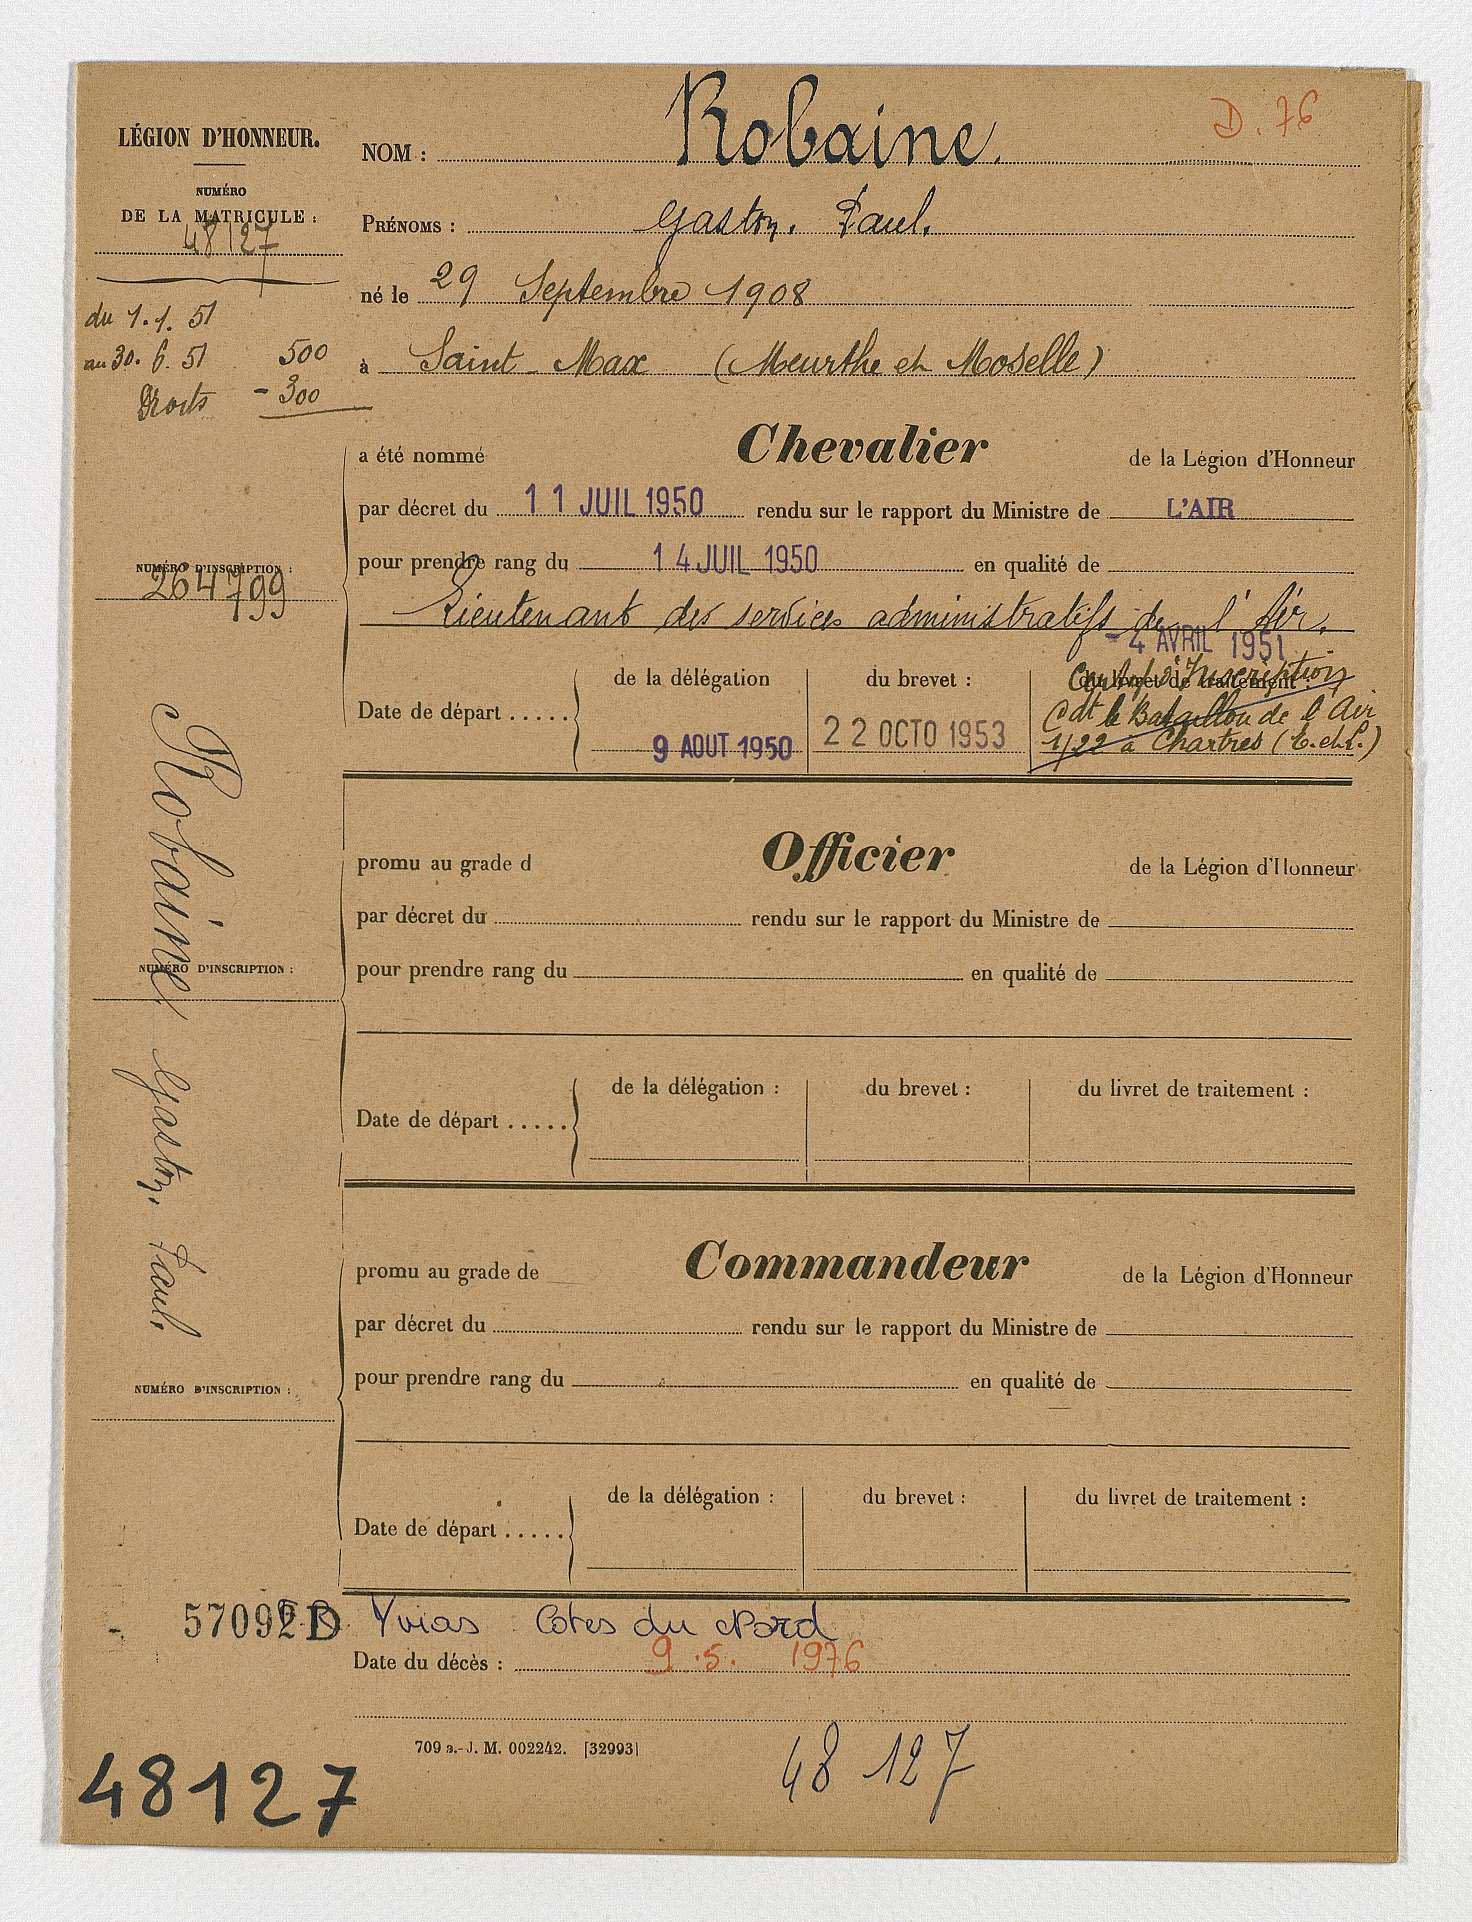 LÉGION D'HONNEUR.
NUMÉRO
DE LA MATRICULE :
48127
du 1.1.51
au 30.6.51 500
Droits - 300
D. 76
NOM : Robaine.
PRÉNOMS : Gaston. Paul.
né le 29 Septembre 1908
à Saint-Max (Meurthe et Moselle)
a été nommé Chevalier de la Légion d'Honneur
par décret du 11 JUIL 1950 rendu sur le rapport du Ministre de L'AIR
NUMÉRO D'INSCRIPTION :
264799
pour prendre rang du 14 JUIL 1950 en qualité de
Lieutenant des services administratifs de l'Air.
- 4 AVRIL 1951
de la délégation du brevet : du livret de traitement :
d'Inscription
Date de départ ..... 9 AOUT 1950 22 OCTO 1953
Cdt le Bataillon de l'Air
1/22 à Chartres (E.et L.)
Robaine Gaston. Paul.
promu au grade d Officier de la Légion d'Honneur
par décret du rendu sur le rapport du Ministre de
NUMÉRO D'INSCRIPTION :
pour prendre rang du en qualité de
de la délégation : du brevet : du livret de traitement :
Date de départ .....
promu au grade de Commandeur de la Légion d'Honneur
par décret du rendu sur le rapport du Ministre de
NUMÉRO D'INSCRIPTION :
pour prendre rang du en qualité de
de la délégation : du brevet : du livret de traitement :
Date de départ .....
57092 D Yvias Cotes du Nord
Date du décès : 9.5.1976
709 a.-J. M. 002242. [32993]
48127
48127